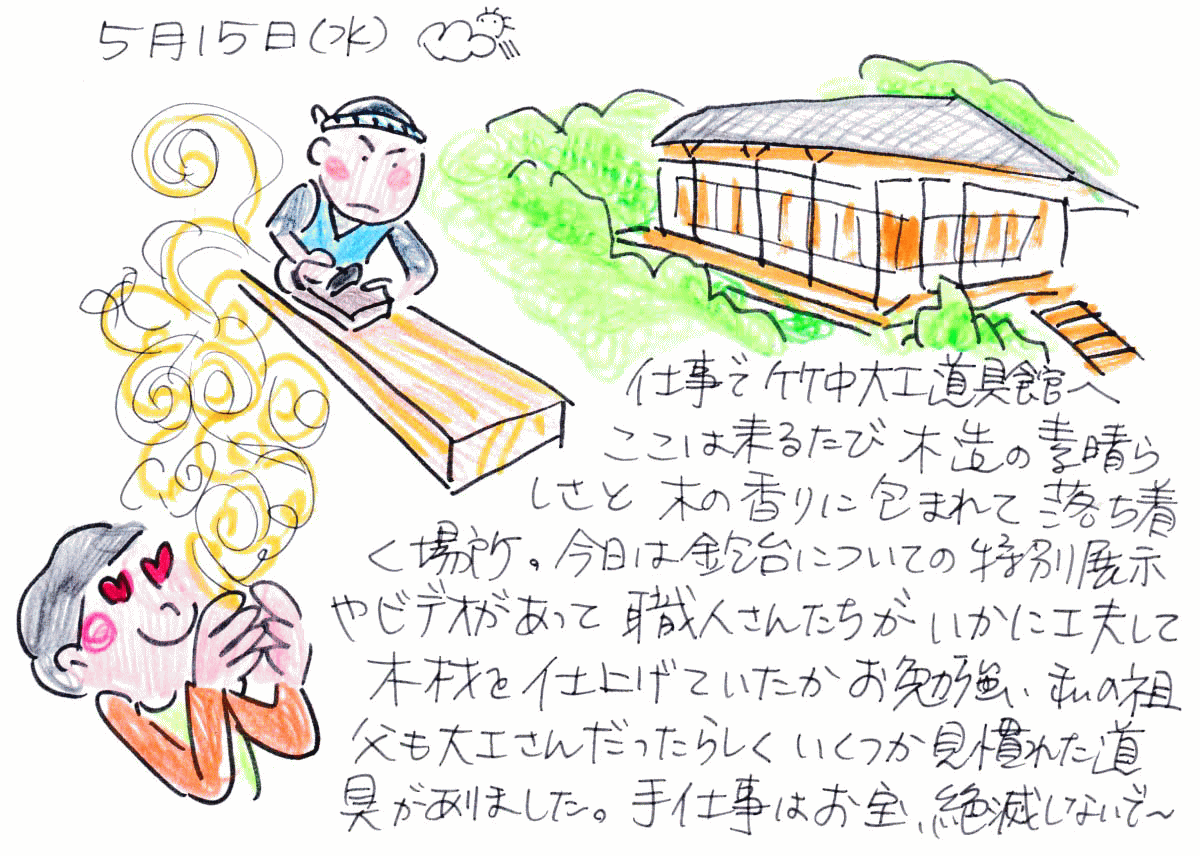 5月15日(水)
仕事で竹中大工道具館へ
ここは来るたび木造の素晴ら
しさと木の香りに包まれて落ち着
く場所。今日は鉋台についての特別展示
やビデオがあって職人さんたちがいかに工夫して
木材を仕上げていたかお勉強、私の祖
父も大工さんだったらしくいくつか見慣れた道
具がありました。手仕事はお宝、絶滅しないで〜